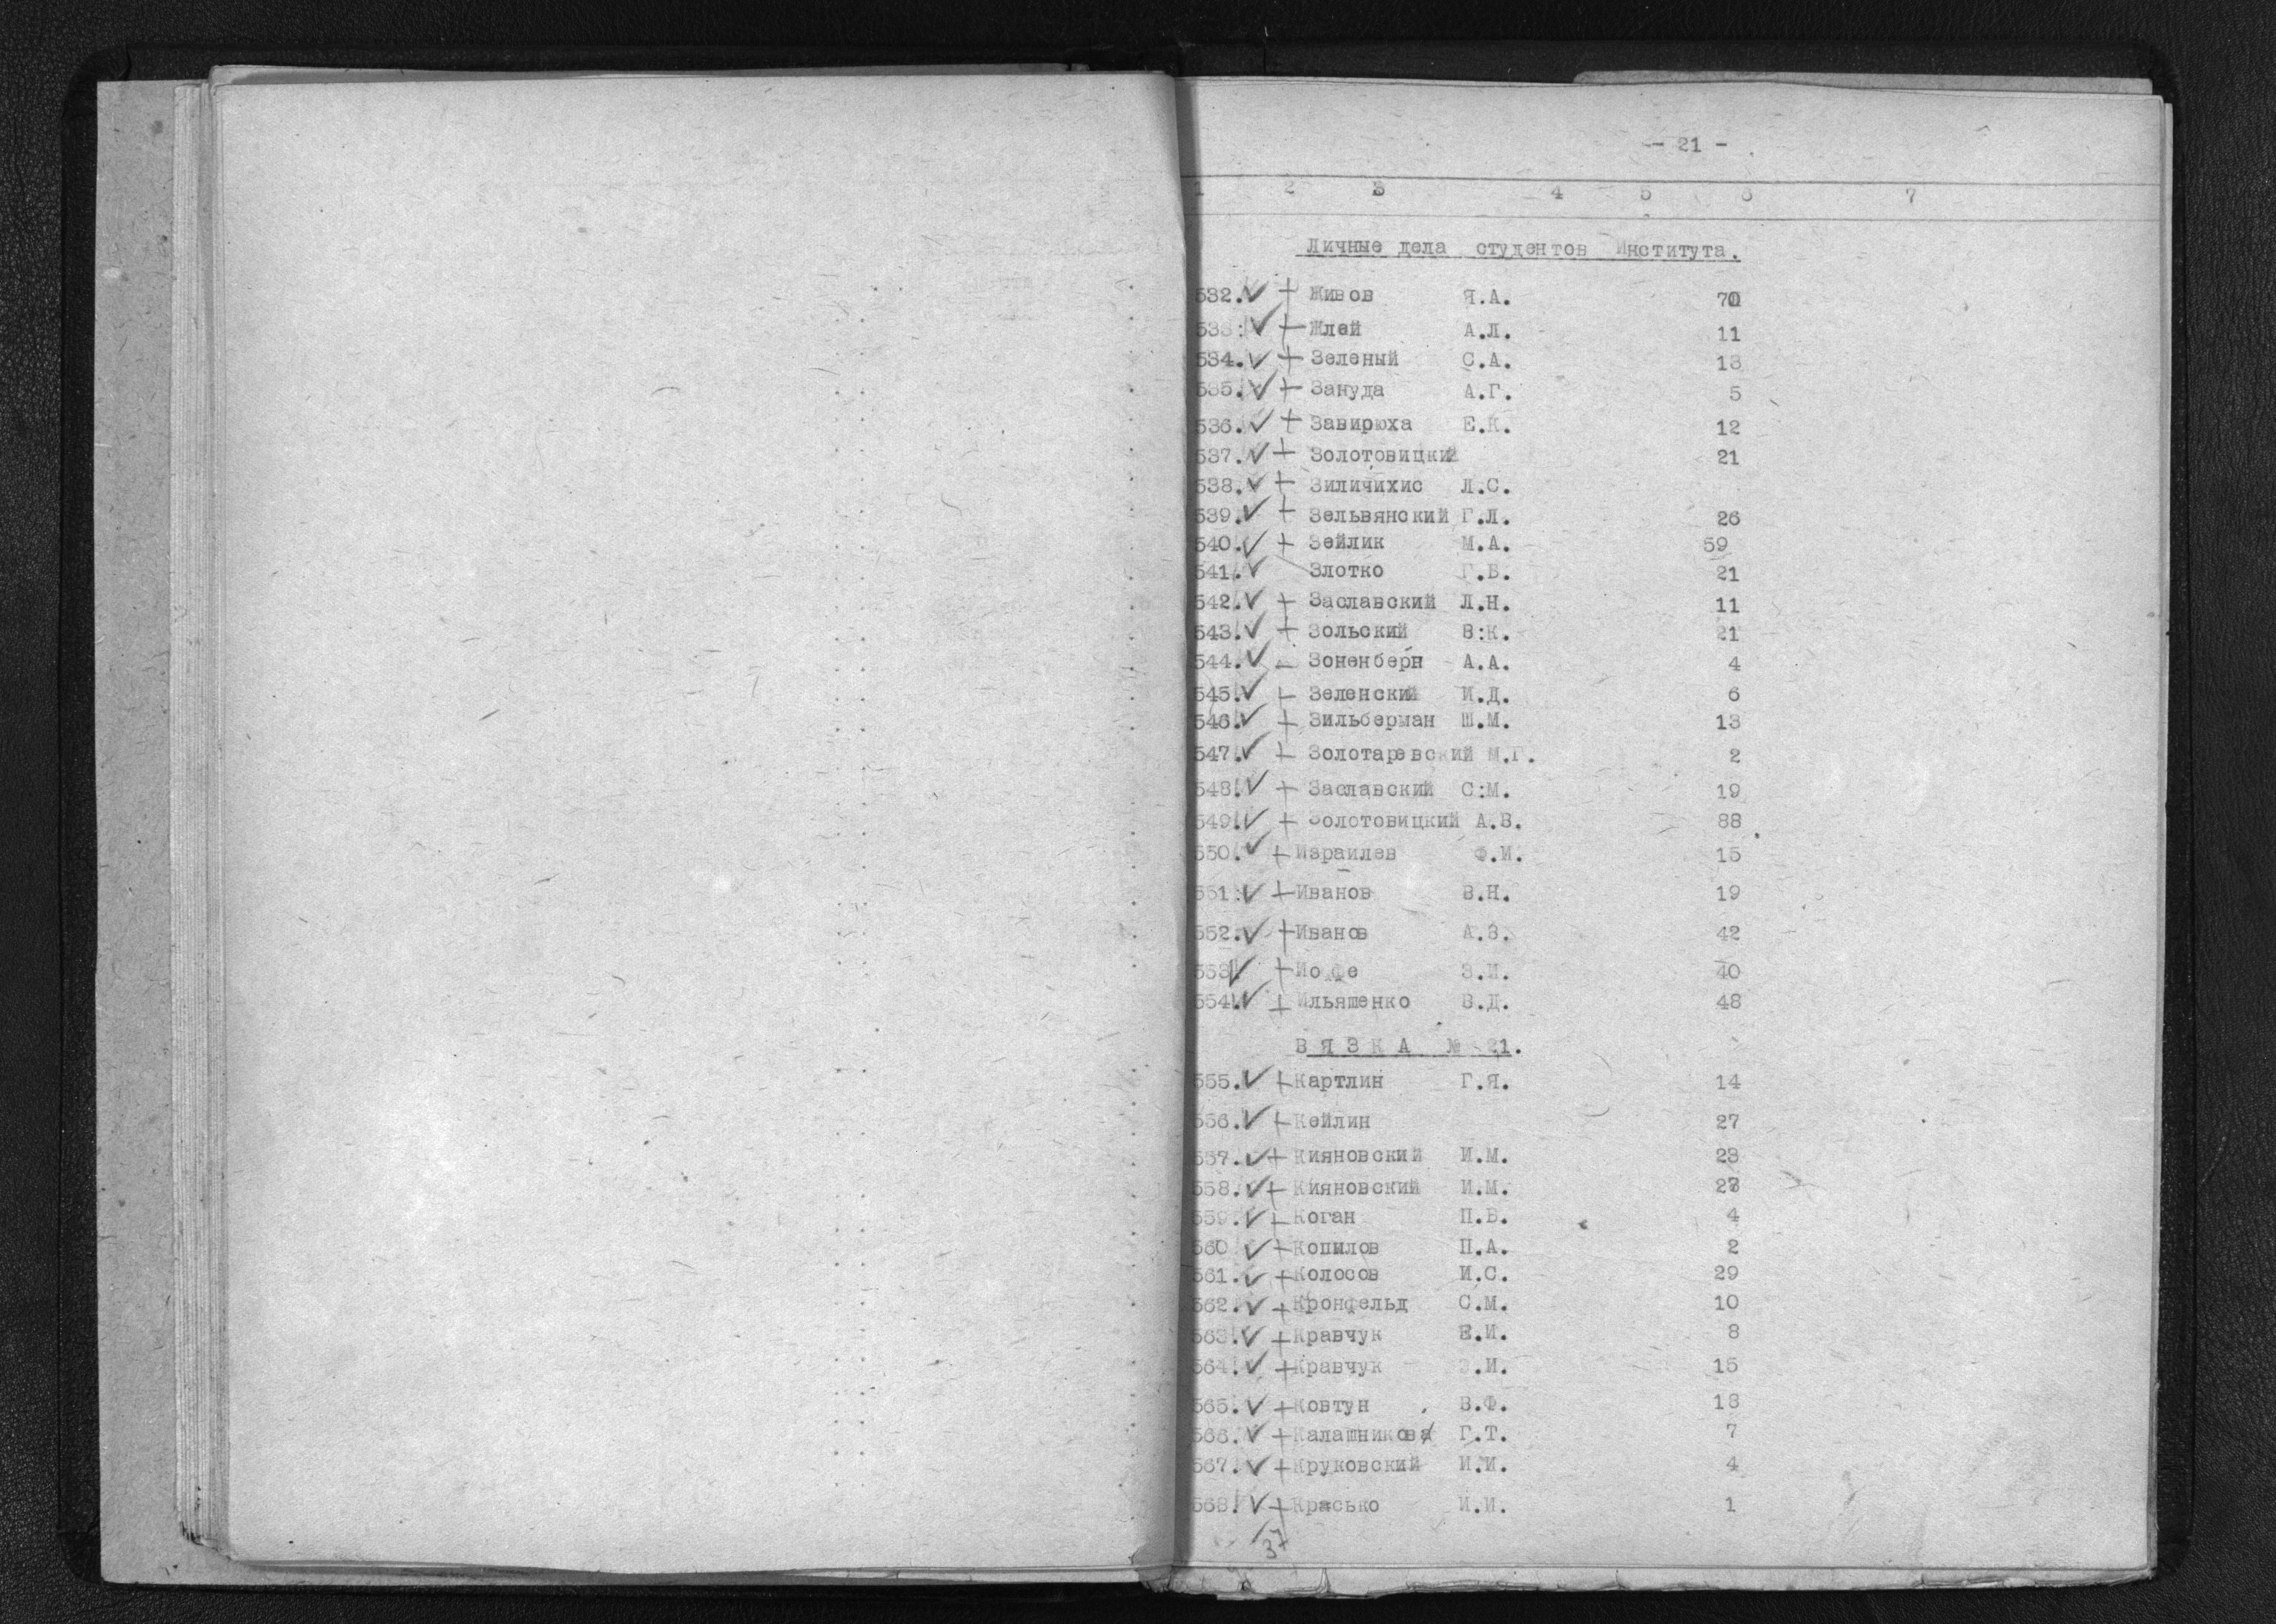 - 21 -
1 2 3 4 5 6 7
Личные дела студентов Института.
532. ✓ + Живов Я.А. 70
533. ✓ + Жлей А.Л. 11
534. ✓ + Зеленый С.А. 13
535. ✓ + Зануда А.Г. 5
536. ✓ + Завирюха Е.К. 12
537. ✓ + Золотовицкий 21
538. ✓ + Зиличихис Л.С.
539. ✓ + Зельвянский Г.Л. 26
540. ✓ + Зейлик М.А. 59
541. ✓ Злотко Г.В. 21
542. ✓ + Заславский Л.Н. 11
543. ✓ + Зольский В:К. 21
544. ✓ - Зоненберн А.А. 4
545. ✓ + Зеленский И.Д. 6
546. ✓ + Зильберман Ш.М. 13
547. ✓ + Золотаревский М.Г. 2
548. ✓ + Заславский С:М. 19
549. ✓ + Золотовицкий А.В. 88
550. ✓ + Израилев Ф.И. 15
551. ✓ + Иванов В.Н. 19
552. ✓ + Иванов А.З. 42
553. ✓ + Иоффе З.И. 40
554. ✓ + Ильяшенко В.Д. 48
ВЯЗКА № 21.
555. ✓ + Картлин Г.Я. 14
556. ✓ + Кейлин 27
557. ✓ + Кияновский И.М. 23
558. ✓ + Кияновский И.М.
559. ✓ + Коган П.В. 4
560 ✓ + Копилов П.А. 2
561. ✓ + Колосов И.С. 29
562. ✓ + Кронфельд С.М. 10
563. ✓ + Кравчук Е.И. 8
564. ✓ + Кравчук .И. 15
565. ✓ + Ковтун В.Ф. 18
566. ✓ + Калашников Г.Т. 7
567. ✓ + Круковский И.И. 4
568. ✓ + Красько И.И. 1
37